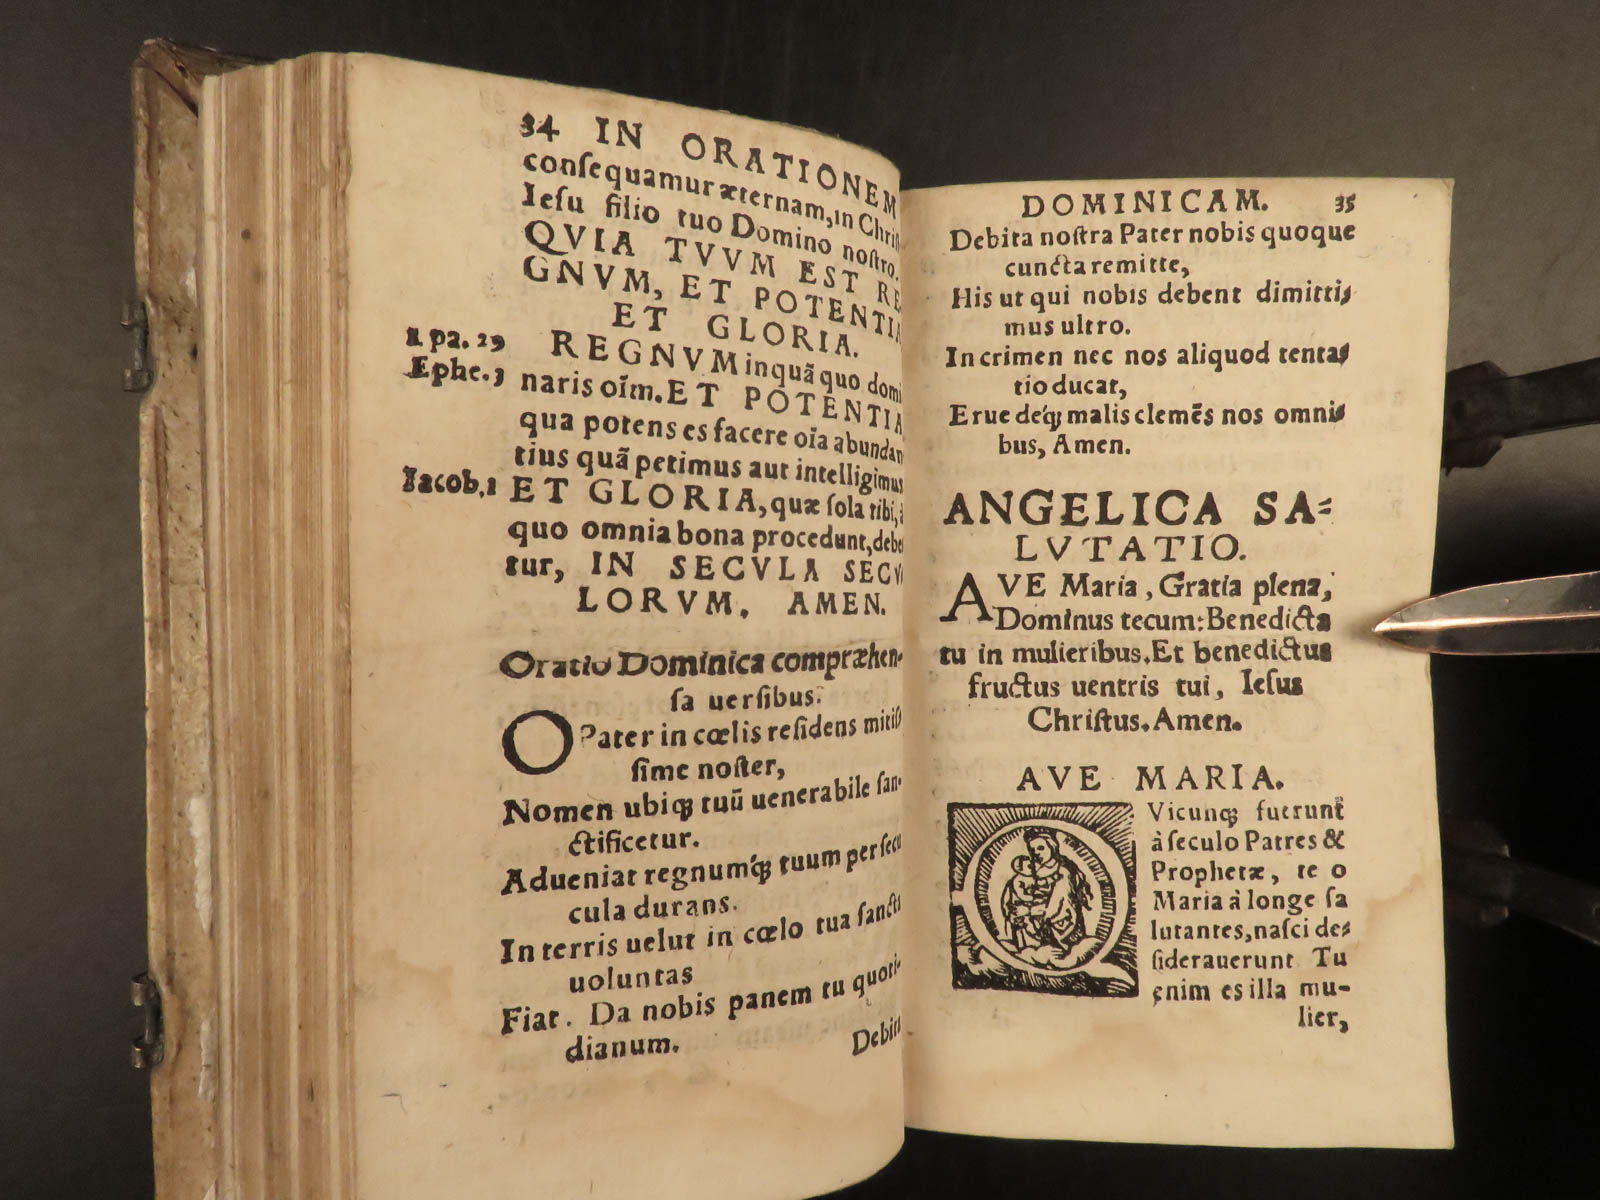 34 IN ORATIONEM
conſequamur æternam, in Chri
Ieſu filio tuo Domino noſtro.
QVIA TVVM EST RE
GNVM, ET POTENTIA
ET GLORIA.
1 pa. 29 REGNVM inquã quo domi
Ephe. 3 naris oĩm. ET POTENTIA
qua potens es facere oĩa abundan
tius quã petimus aut intelligimus
Iacob. 1 ET GLORIA, quæ ſola tibi, à
quo omnia bona procedunt, debe
tur, IN SECVLA SECV
LORVM, AMEN.
Oratio Dominica compræhen-
ſa uerſibus.
O Pater in cœlis reſidens mitiſ
ſime noſter,
Nomen ubiqꝫ tuũ uenerabile ſan-
ctificetur.
Adueniat regnumqꝫ tuum per ſecu
cula durans.
In terris uelut in cœlo tua ſancta
uoluntas
Fiat. Da nobis panem tu quoti-
dianum.
Debita
DOMINICAM. 35
Debita noſtra Pater nobis quoque
cuncta remitte,
His ut qui nobis debent dimitti⸗
mus ultro.
In crimen nec nos aliquod tenta⸗
tio ducat,
Erue deqꝫ malis clemẽs nos omni⸗
bus, Amen.
ANGELICA SA⸗
LVTATIO.
AVE Maria, Gratia plena,
Dominus tecum: Benedicta
tu in mulieribus. Et benedictus
fructus uentris tui, Ieſus
Chriſtus. Amen.
AVE MARIA.
QVicunqꝫ fuerunt
à ſeculo Patres &
Prophetæ, te o
Maria à longe ſa
lutantes, naſci de⸗
ſiderauerunt Tu
enim es illa mu-
lier,